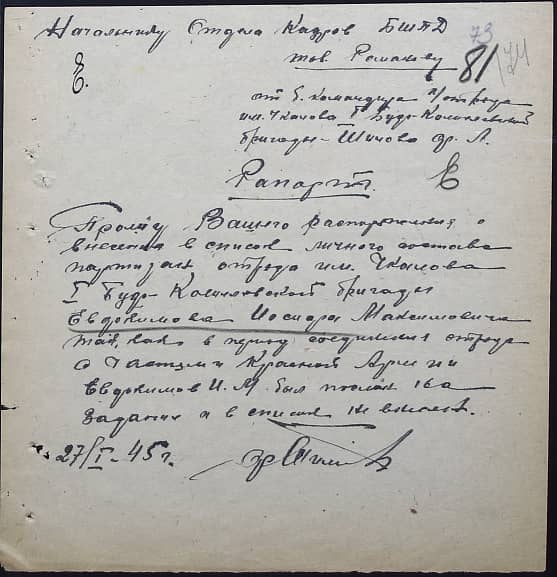 Начальнику Отдела Кадров БШПД
73
тов. Романову
81/74
Е.
от б. командира п/отряда
им. Чкалова I Будо-Кошелевской
бригады Шилова гр. Л.
Рапорт.
Е
Прошу Вашего распоряжения о
внесении в список личного состава
партизан отряда им. Чкалова
I Будо-Кошелевской бригады
Евдокимова Иосифа Максимовича
так, как в период соединения отряда
с частями Красной Армии
Евдокимов И. М. был послан на
задание и в список не внесен.
27/I-45 г.